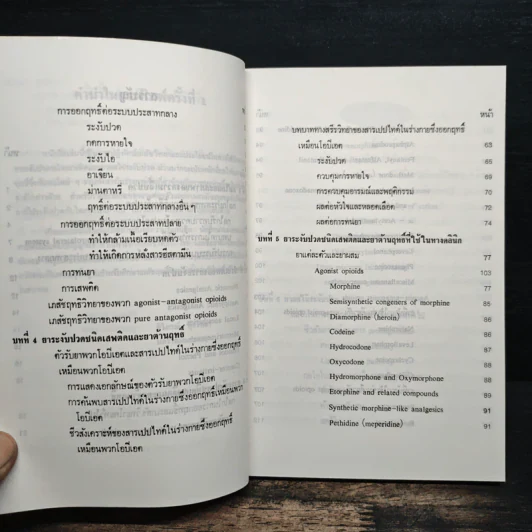 การออกฤทธิ์ต่อระบบประสาทกลาง
ระงับปวด
กดการหายใจ
ระงับไอ
อาเจียน
ม่านตาหรี่
ฤทธิ์ต่อระบบประสาทกลางอื่น ๆ
การออกฤทธิ์ต่อระบบประสาทปลาย
ทำให้กล้ามเนื้อเรียบหดตัว
ทำให้เกิดการหลั่งสารฮีสตามีน
การทนยา
การเสพติด
เภสัชวิทยาของพวก agonist-antagonist opioids
เภสัชวิทยาของพวก pure antagonist opioids
บทที่ 4 ยาระงับปวดชนิดเสพติดและยาต้านฤทธิ์
ตัวรับยาพวกโอปิเอตและสารเปปไทด์ในร่างกายซึ่งออกฤทธิ์
เหมือนพวกโอปิเอต
การแสดงเอกลักษณ์ของตัวรับยาพวกโอปิเอต
การค้นพบสารเปปไทด์ในร่างกายซึ่งออกฤทธิ์เหมือนพวก
โอปิเอต
ชีวสังเคราะห์ของสารเปปไทด์ในร่างกายซึ่งออกฤทธิ์
เหมือนพวกโอปิเอต
หน้า
บทบาททางสรีรวิทยาของสารเปปไทด์ในร่างกายซึ่งออกฤทธิ์
เหมือนโอปิเอต 63
ระงับปวด 65
ควบคุมการหายใจ 68
การควบคุมอารมณ์และพฤติกรรม 70
ผลต่อหัวใจและหลอดเลือด 72
ผลต่อการทนยา 74
บทที่ 5 ยาระงับปวดชนิดเสพติดและยาต้านฤทธิ์ที่ใช้ในทางคลินิก
ยาแต่ละตัวและยาผสม 77
Agonist opioids 103
Morphine 77
Semisynthetic congeners of morphine 85
Diamorphine (heroin) 85
Codeine 86
Hydrocodone 87
Oxycodone 88
Hydromorphone and Oxymorphone 88
Etorphine and related compounds 89
Synthetic morphine-like analgesics 91
Pethidine (meperidine) 91